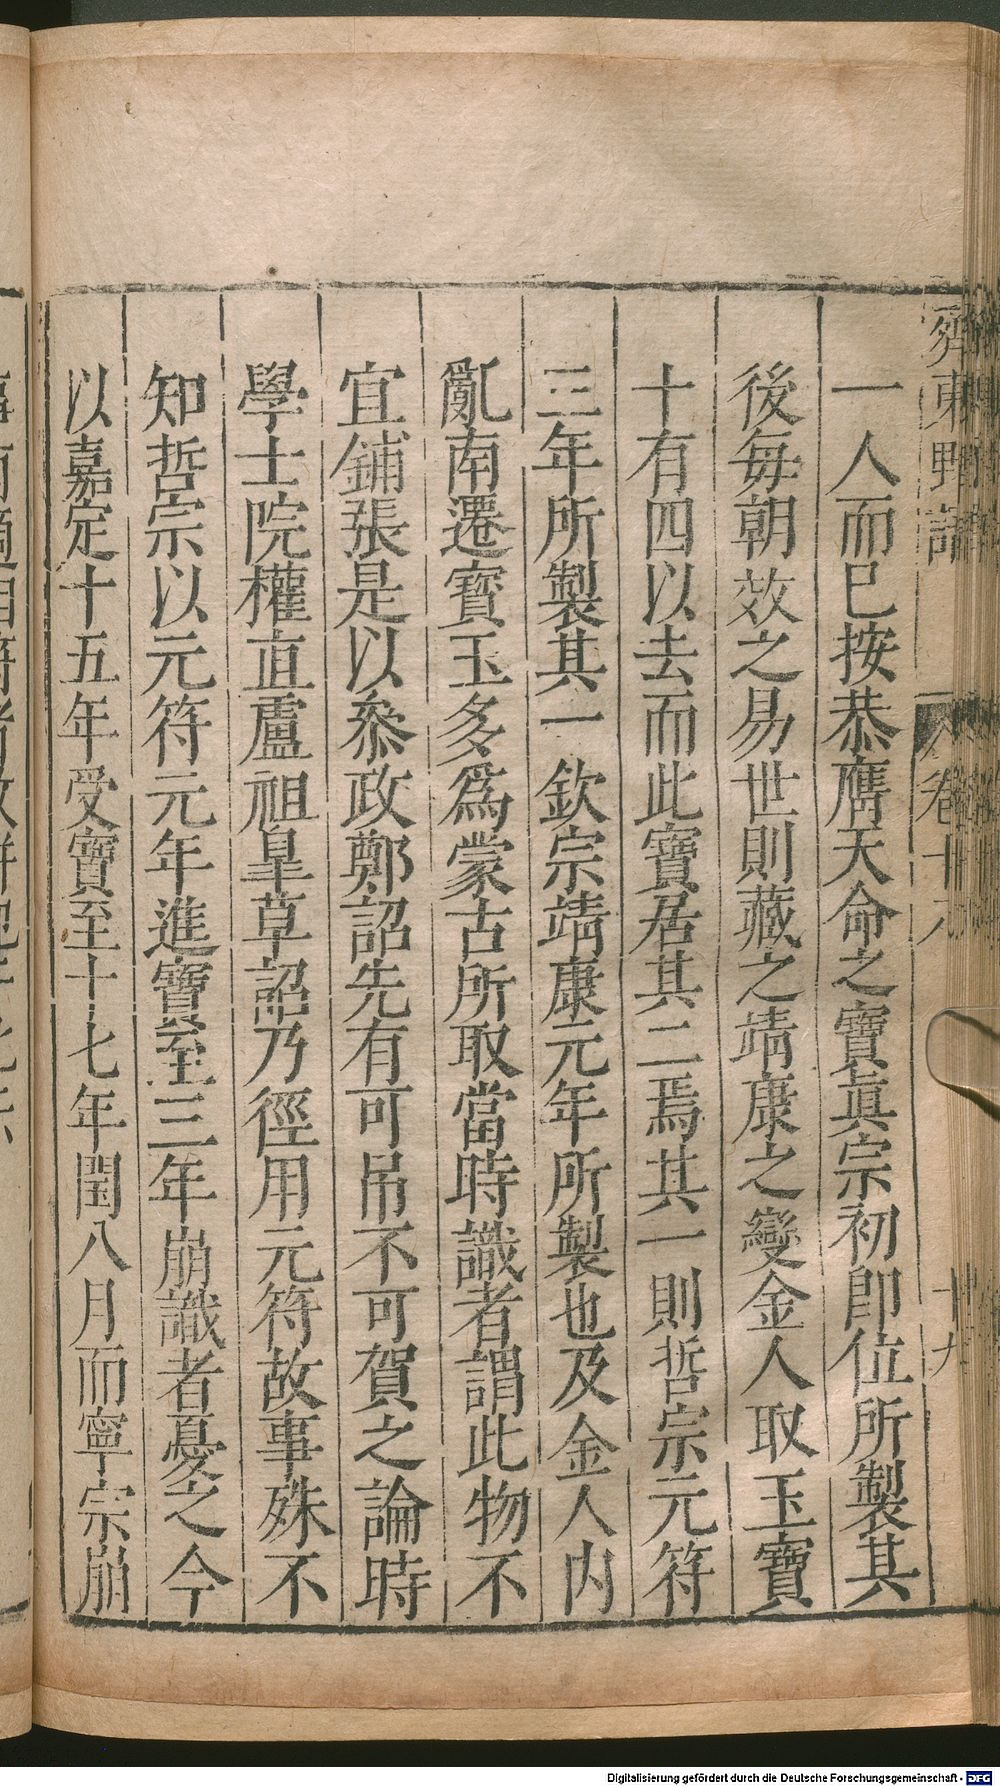 齊東野語 卷十九 十九
一人而已按恭膺天命之寶眞宗初即位所製其
後每朝效之易世則藏之靖康之變金人取玉寶
十有四以去而此寶居其二焉其一則哲宗元符
三年所製其一欽宗靖康元年所製也及金人内
亂南遷寳玉多爲蒙古所取當時識者謂此物不
宜鋪張是以叅政鄭詔先有可吊不可賀之論時
學士院權直盧祖皐草詔乃徑用元符故事殊不
知哲宗以元符元年進寶至三年崩識者憂之今
以嘉定十五年受寶至十七年閏八月而寧宗崩
Digitalisierung gefördert durch die Deutsche Forschungsgemeinschaft - DFG